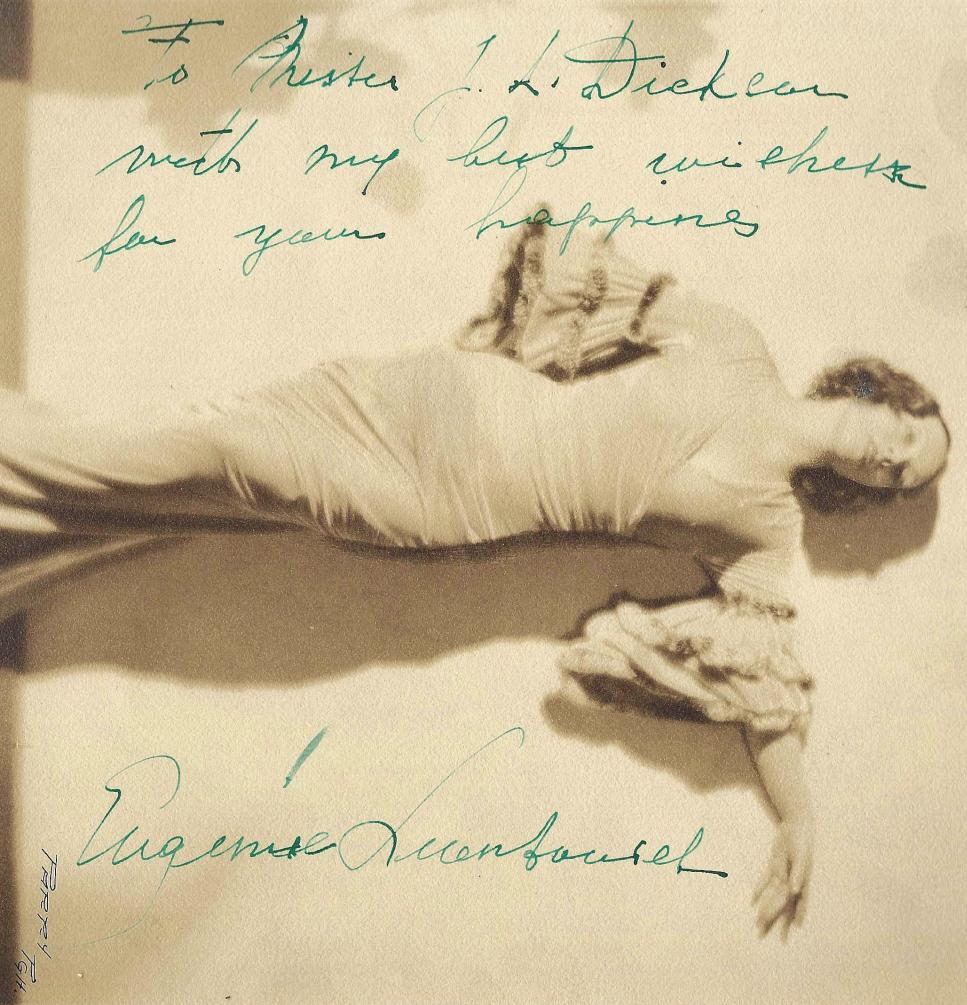 To Mister J. L. Dickson
with my best wishes
for your happines
Eugénie Leontovich
PARRY
PGH.